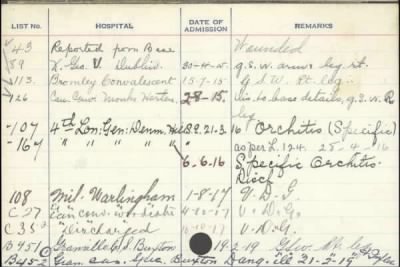 LIST No. HOSPITAL DATE OF ADMISSION REMARKS
43 Reported from Base Wounded
9 K. Geo. V. Dublin 30-4-15 g.s.w. arms leg rt.
113 Bromley Convalescent 15-7-15 G.S.W. Rt. leg
126 Can. Conv. Monks Horton 28-15. dis. to base details, g.s.w. R leg
-107 4th Lon: Gen: Denm. Hill 21.3.16 Orchitis (Specific)
-164 " " " " as per L. 124. 25-4-16
6.6.16 Specific Orchitis
Disch
108 Mil. Warlingham 1-8-17 V.D.G.
C27 Can conv. Woodcote 4-10-17 V.D.G.
C35 Discharged V.D.G.
B451 Granville C. S. Buxton 19-2-19
B452 Gran. Can. Buxton Dang. ill 21-2-19